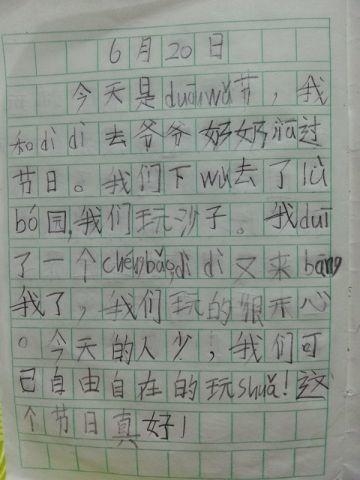 6月20日
今天是duānwǔ节，我
和dì dì去爷爷奶奶jiā过
节日。我们下wǔ去了lǜ
bó园,我们玩沙子。我duī
了一个chéngbǎo,dì dì又来bāng
我了，我们玩的很开心
。今天的人少，我们可
已自由自在的玩shuǎ！这
个节日真好！